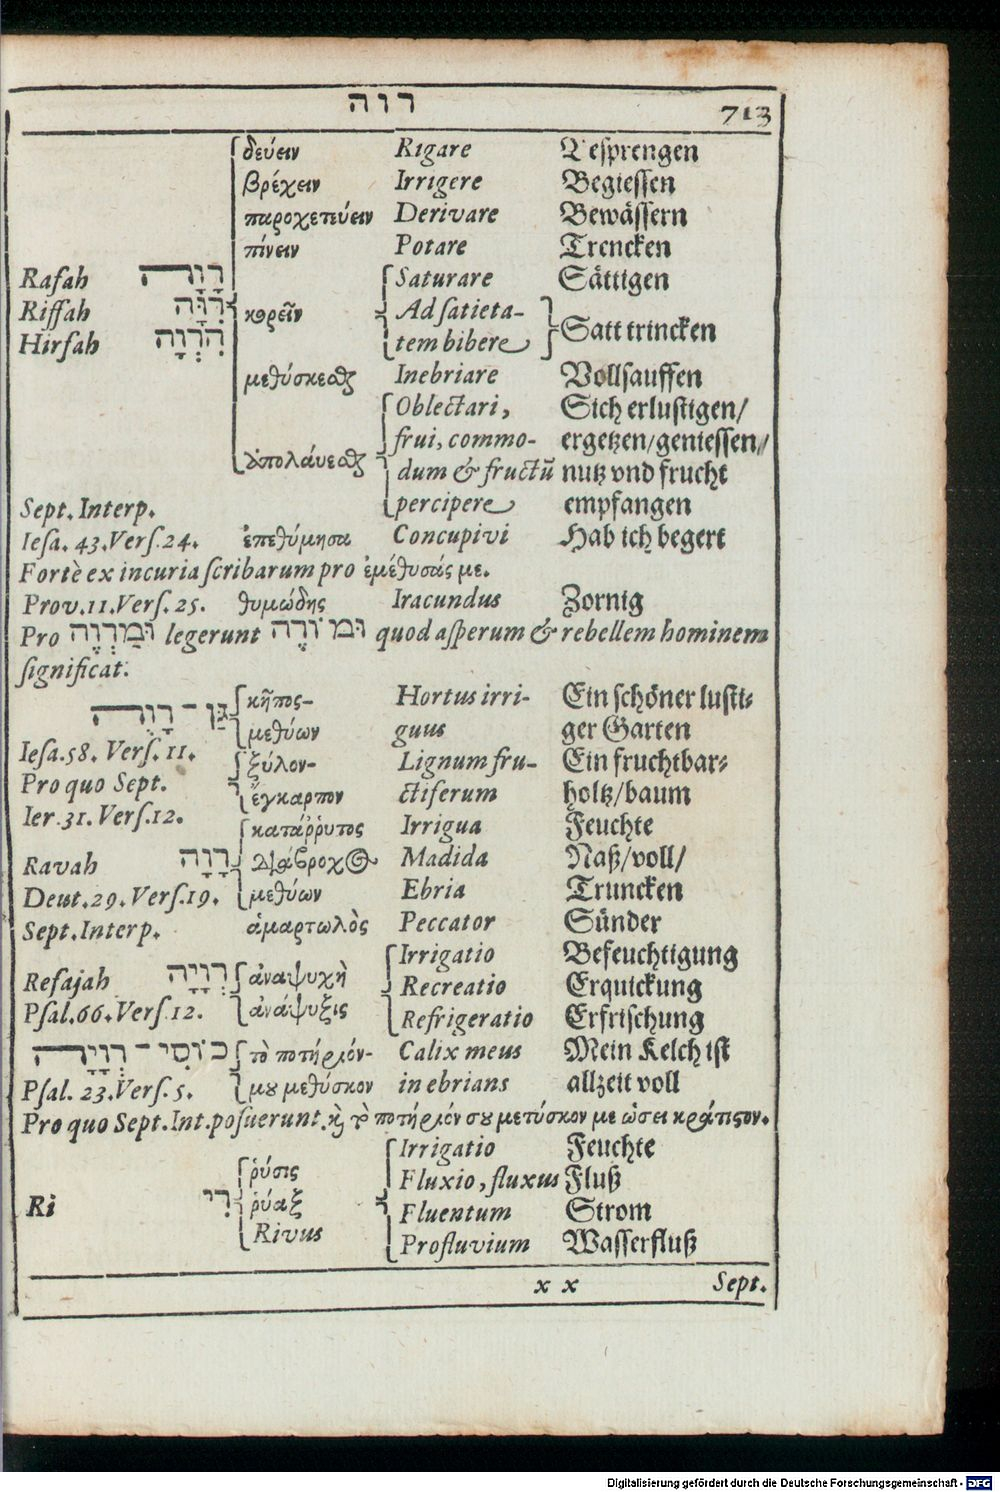 רוה 713
δεύειν Rigare Besprengen
βρέχειν Irrigere Begiessen
παροχετεύειν Derivare Bewässern
πίνειν Potare Trencken
Raſah רָוָה Saturare Sättigen
Riſſah רִוָּה κορεῖν Ad ſatieta-
Hirſah הִרְוָה tem bibere Satt trincken
μεθύσκεσθαι Inebriare Vollsauffen
Oblectari, Sich erlustigen/
frui, commo- ergetzen/geniessen/
ἀπολάυεσθαι dum & fructū nutz vnd frucht
percipere empfangen
Sept. Interp.
Ieſa. 43. Verſ. 24. ἐπεθύμησα Concupivi Hab ich begert
Fortè ex incuria ſcribarum pro ἐμέθυσάς με.
Prov. 11. Verſ. 25. θυμώδης Iracundus Zornig
Pro וּמַרְוֶה legerunt וּמוֹרֶה quod aſperum & rebellem hominem
ſignificat.
גַּן־רָוֶה κῆπος- Hortus irri- Ein schöner lusti-
μεθύων guus ger Garten
Ieſa. 58. Verſ. 11. ξύλον- Lignum fru- Ein fruchtbar-
Pro quo Sept. ἔγκαρπον ctiferum holtz/baum
Ier. 31. Verſ. 12. κατάῤῥυτος Irrigua Feuchte
Ravah רָוָה διάβροχος Madida Naß/voll/
Deut. 29. Verſ. 19. μεθύων Ebria Truncken
Sept. Interp. ἁμαρτωλὸς Peccator Sünder
Irrigatio Befeuchtigung
Reſajah רְוָיָה ἀναψυχὴ Recreatio Erquickung
Pſal. 66. Verſ. 12. ἀνάψυξις Refrigeratio Erfrischung
כּוֹסִי־רְוָיָה τὸ ποτήριόν- Calix meus Mein Kelch ist
Pſal. 23. Verſ. 5. μου μεθύσκον in ebrians allzeit voll
Pro quo Sept. Int. poſuerunt. καὶ τὸ ποτήριόν σου μετύσκον με ὡσει κράτιστον.
Irrigatio Feuchte
ῥύσις Fluxio, fluxus Fluß
Ri רִי ῥύαξ Fluentum Strom
Rivus Profluvium Wasserfluß
x x Sept.
Digitalisierung gefördert durch die Deutsche Forschungsgemeinschaft - DFG